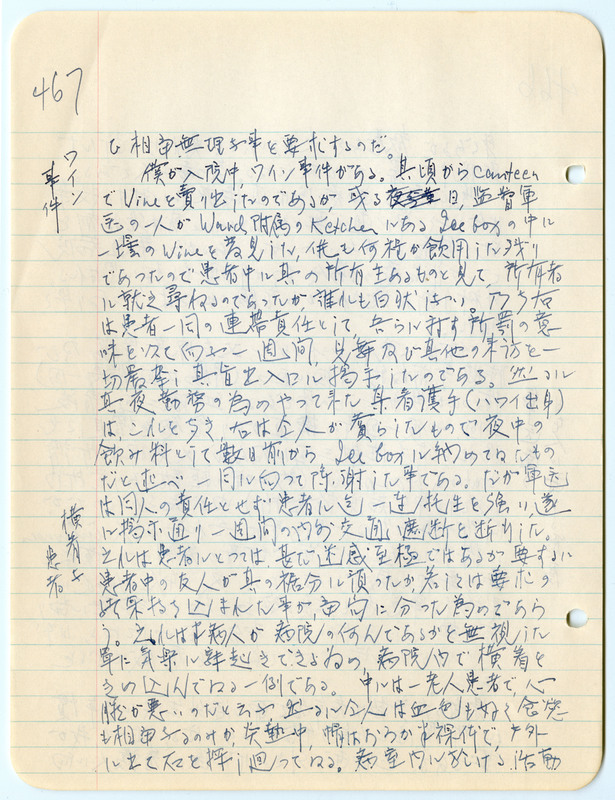 467
ワイン
事件
横着な
患者
相当無理な事を要求するのだ。
僕が入院中、ワイン事件がある。其頃からcanteen
でVineを賣り出したのであるが、或る日、監督軍
医の一人がWard附属のKetchenにあるIce boxの中に
一壜のWineを発見した、然も何程か飲用した残り
であつたので患者中に其の所有主あるものと見て、所有者
に就き尋ねるのであつたが、誰れも白状しない。乃ち右
は患者一同の連帯責任として、各らに対する所罰の意
味を以て向ふ一週間、見舞及び其他の来訪を一
切厳禁し其旨出入口に掲示したのである。然るに
其夜勤務の為めやつて来た某看護手(ハワイ出身)
は、これを歩き、右は仝人が賚らしたもので夜中の
飲み料として数日前からIce boxに納めてゐたもの
だと述べ一同に向つて陳謝した事である。だが軍医
は同人の責任とせず患者に迄一連托生を強い、遂
に掲示通り一週間の内外交通遮断を断行した。
之れは患者にとつては、甚だ迷惑至極ではあるが要するに
患者中の友人が其の裾分に預つたか、若しくは要求の
結果持ち込まれた事が、当局に分つた為めであら
う。之れは半病人が病院の何んであるかを無視した
単に気楽に寝起きできる為め、病院内で横着を
きめ込んでゐる一例である。中には一老人患者で、心
臓が悪いのだと云ふ 然るに仝人は血色も好く食慾
も相当あるのみか、炎熱中、帽はおろか半裸体で、戸外
に出て石を探し廻つてゐる。病室内に於ける活動